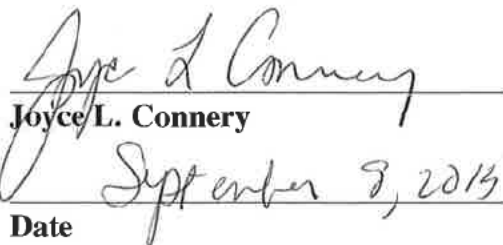 Joyce L Connery
Joyce L. Connery
September 8, 2015
Date